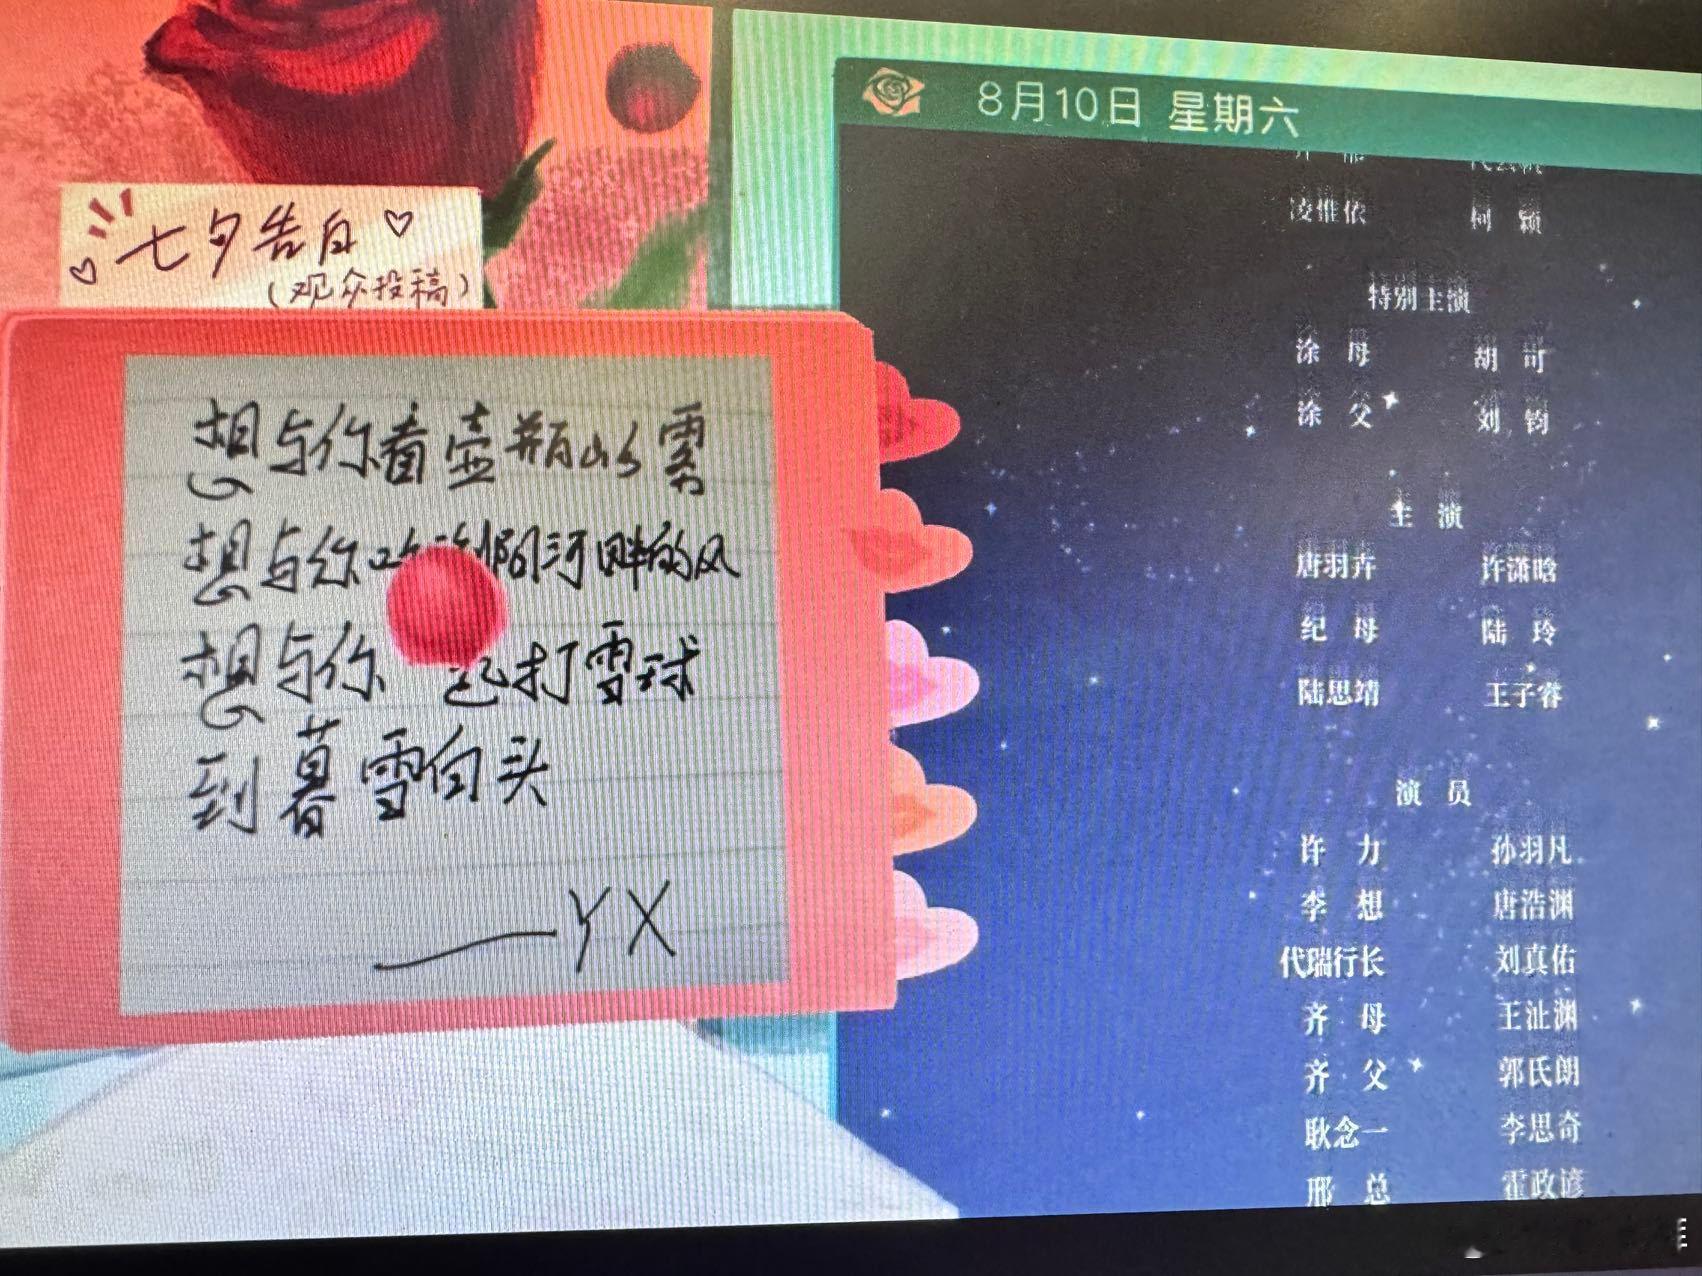 七夕告白
(观众投稿)
想与你看壶瓶山雾
想与你吹 阿河畔的风
想与你 起打雪球
到暮雪白头
——YX
8月10日 星期六
凌惟依 柯颖
特别主演
涂母 胡可
涂父 刘钧
主演
唐羽卉 许潇晗
纪母 陆玲
陆思靖 王子睿
演员
许力 孙羽凡
李想 唐浩渊
代瑞行长 刘真佑
齐母 王沚渊
齐父 郭氏朗
耿念一 李思奇
邢总 霍政谚